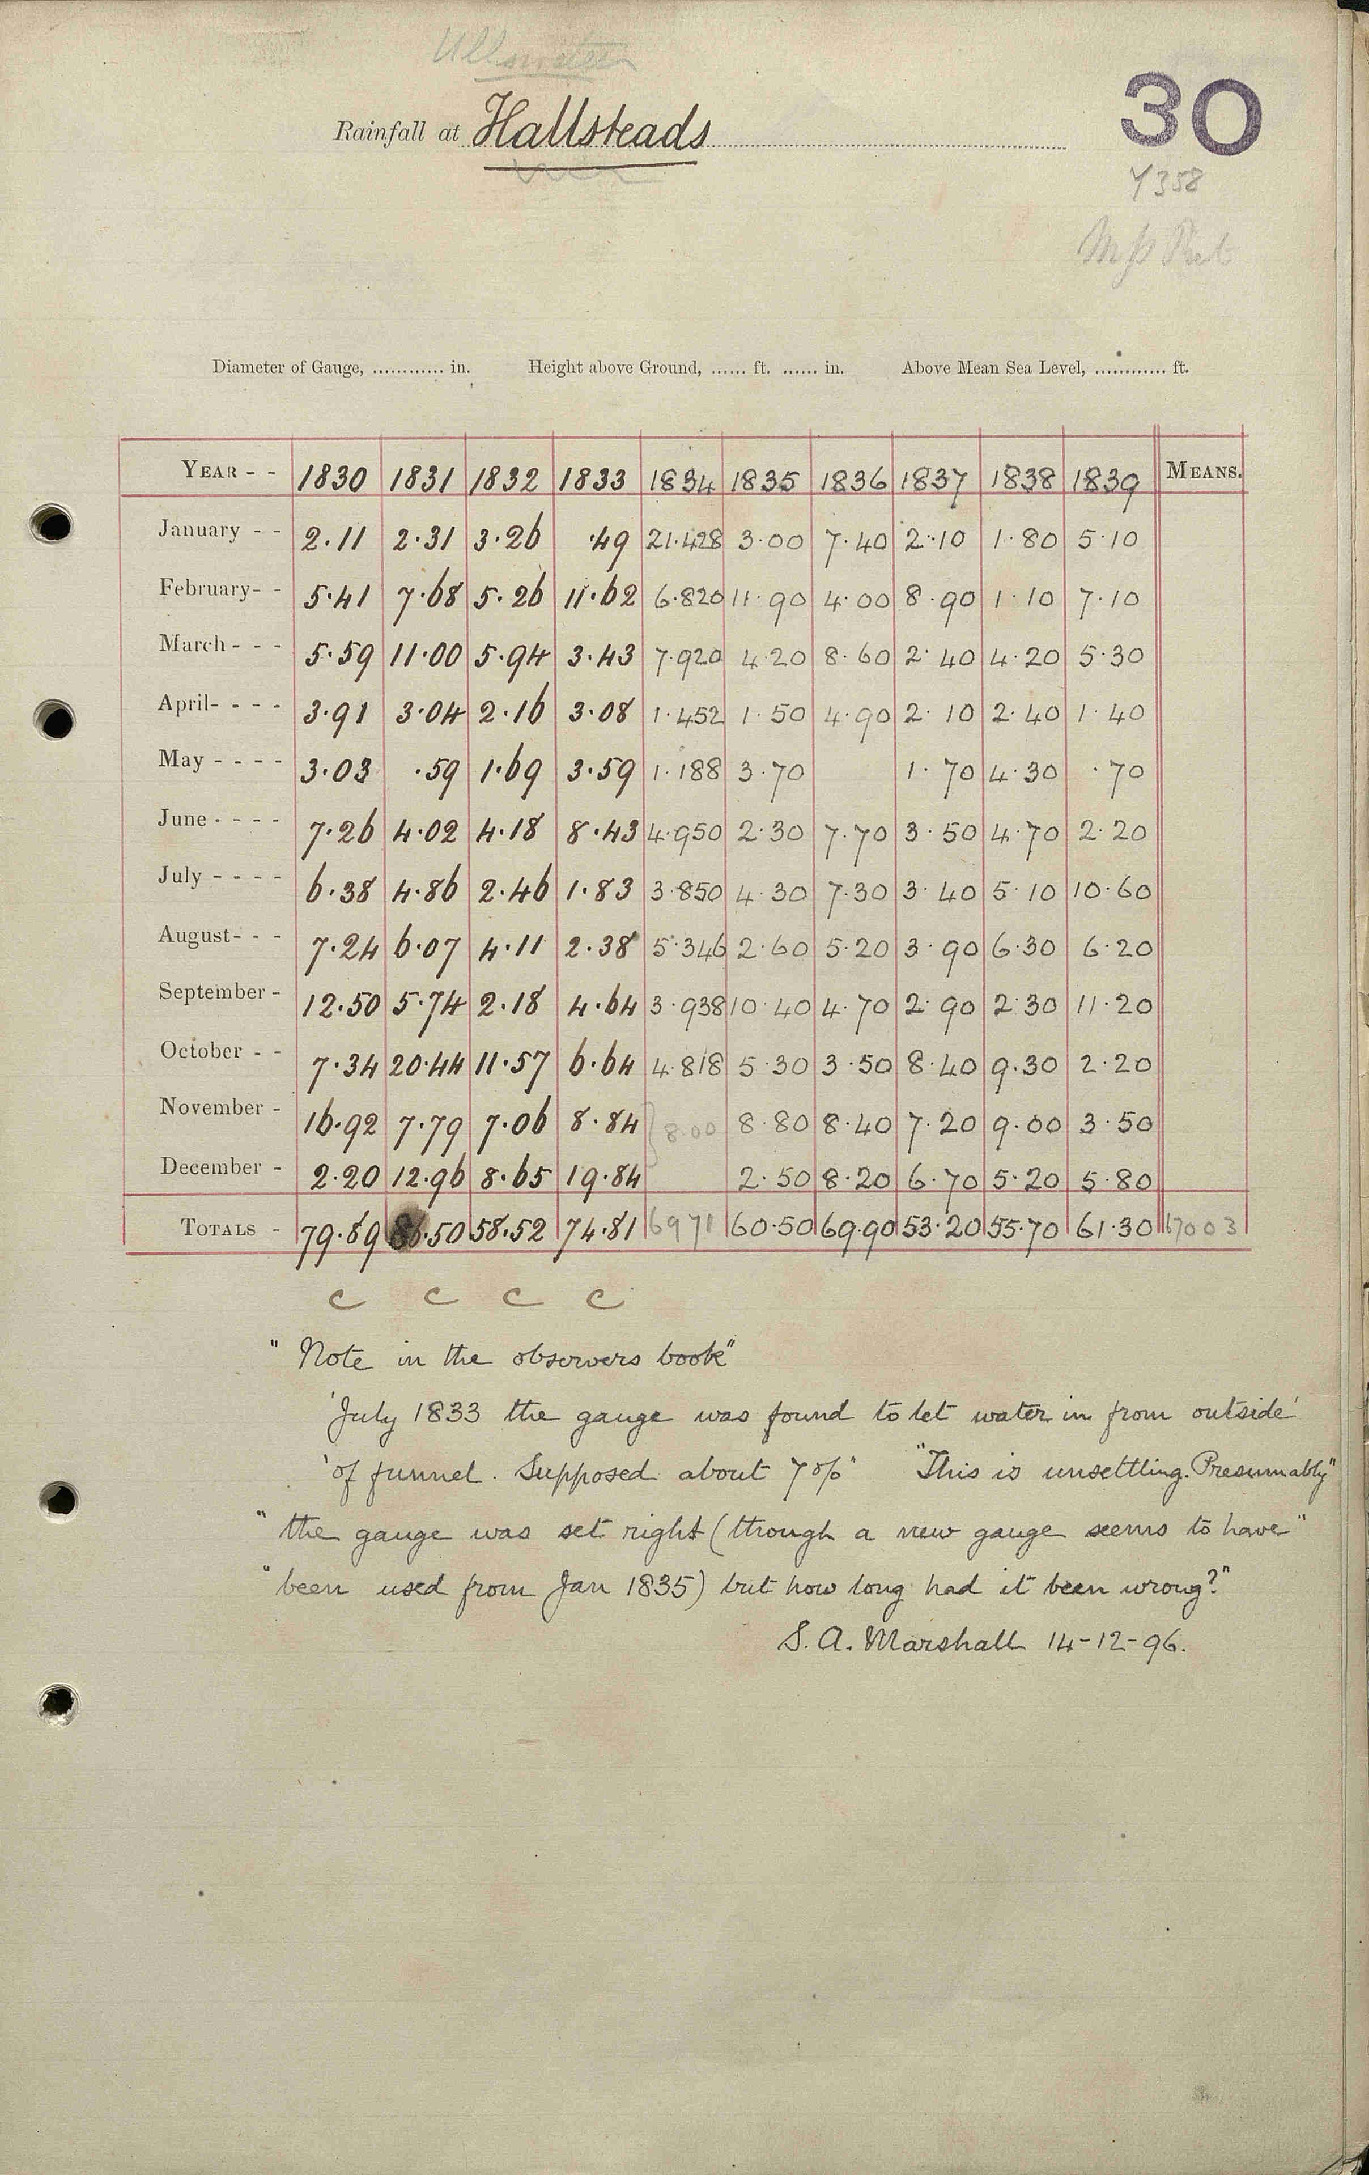 Ullswater
Rainfall at Hallsteads
30
Diameter of Gauge, ............ in. Height above Ground, ...... ft. ...... in. Above Mean Sea Level, ............ ft.
YEAR - - 1830 1831 1832 1833 1834 1835 1836 1837 1838 1839 MEANS.
January - - 2.11 2.31 3.26 .49 21.428 3.00 7.40 2.10 1.80 5.10
February - - 5.41 7.68 5.26 11.62 6.820 11.90 4.00 8.90 1.10 7.10
March - - - 5.59 11.00 5.94 3.43 7.920 4.20 8.60 2.40 4.20 5.30
April - - - - 3.91 3.04 2.16 3.08 1.452 1.50 4.90 2.10 2.40 1.40
May - - - - 3.03 .59 1.69 3.59 1.188 3.70 1.70 4.30 .70
June - - - - 7.26 4.02 4.18 8.43 4.950 2.30 7.70 3.50 4.70 2.20
July - - - - 6.38 4.86 2.46 1.83 3.850 4.30 7.30 3.40 5.10 10.60
August - - - 7.24 6.07 4.11 2.38 5.346 2.60 5.20 3.90 6.30 6.20
September - 12.50 5.74 2.18 4.64 3.938 10.40 4.70 2.90 2.30 11.20
October - - 7.34 20.44 11.57 6.64 4.818 5.30 3.50 8.40 9.30 2.20
November - 16.92 7.79 7.06 8.84 } 8.00 8.80 8.40 7.20 9.00 3.50
December - 2.20 12.96 8.65 19.84 2.50 8.20 6.70 5.20 5.80
TOTALS - 79.89 86.50 58.52 74.81 69 71 60.50 69.90 53.20 55.70 61.30 67003
c c c c
" Note in the observers book"
'July 1833 the gauge was found to let water in from outside'
'of funnel. Supposed about 7 %' "This is unsettling. Presumably"
"the gauge was set right (though a new gauge seems to have"
"been used from Jan 1835) but how long had it been wrong?"
S. A. Marshall 14-12-96.